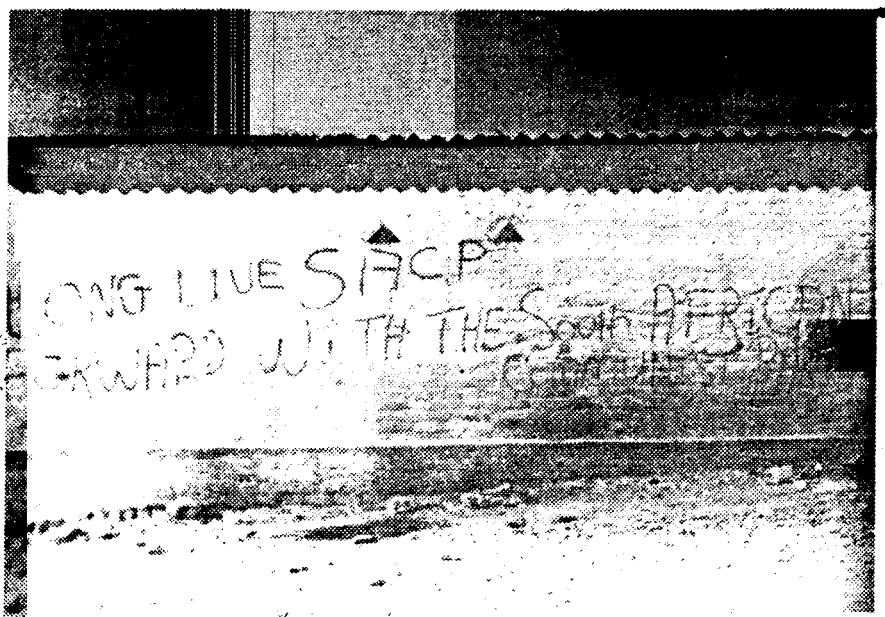 ONG LIVE SACP
RWARD WITH THE SOUTH AFRICAN
COMMUNIST